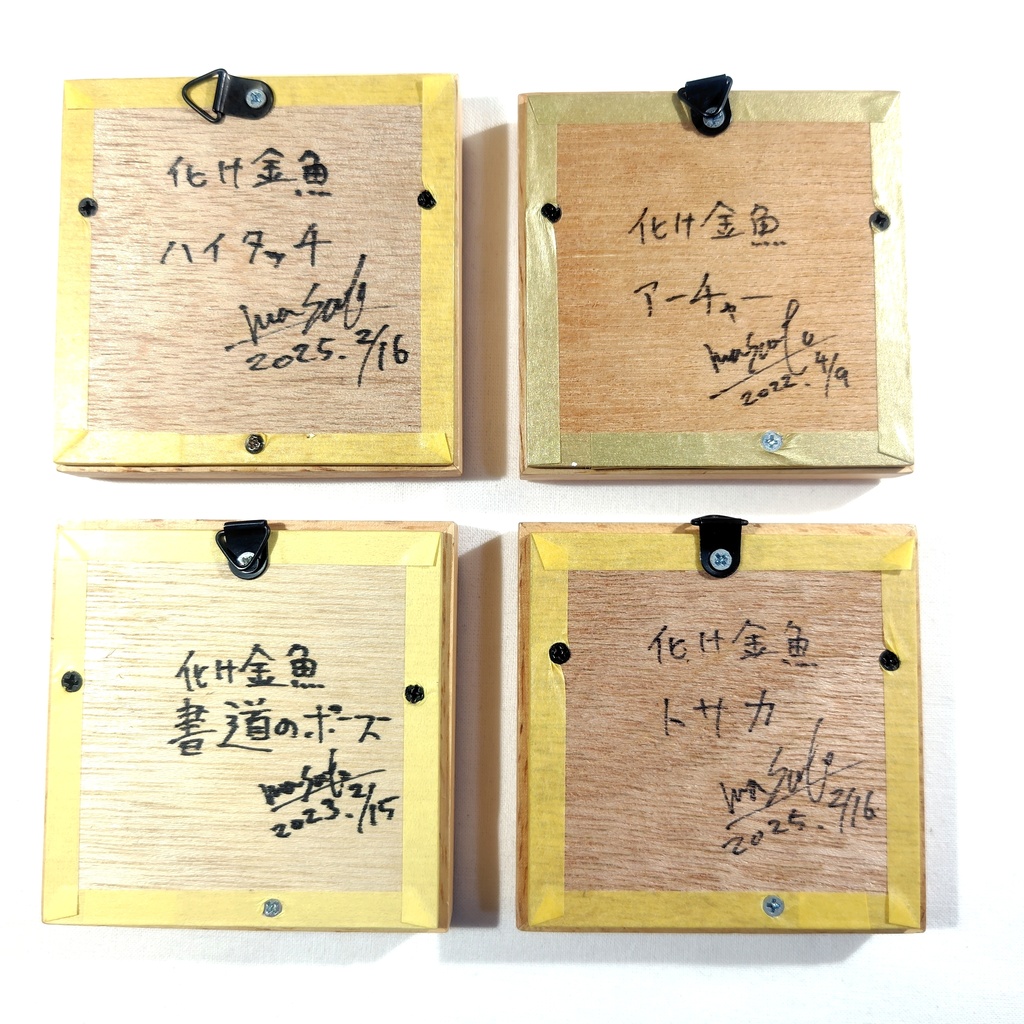 化け金魚
ハイタッチ
masato
2025.2/16
化け金魚
アーチャー
masato
2022.4/9
化け金魚
書道のポーズ
masato
2023.2/15
化け金魚
トサカ
masato
2025.2/16